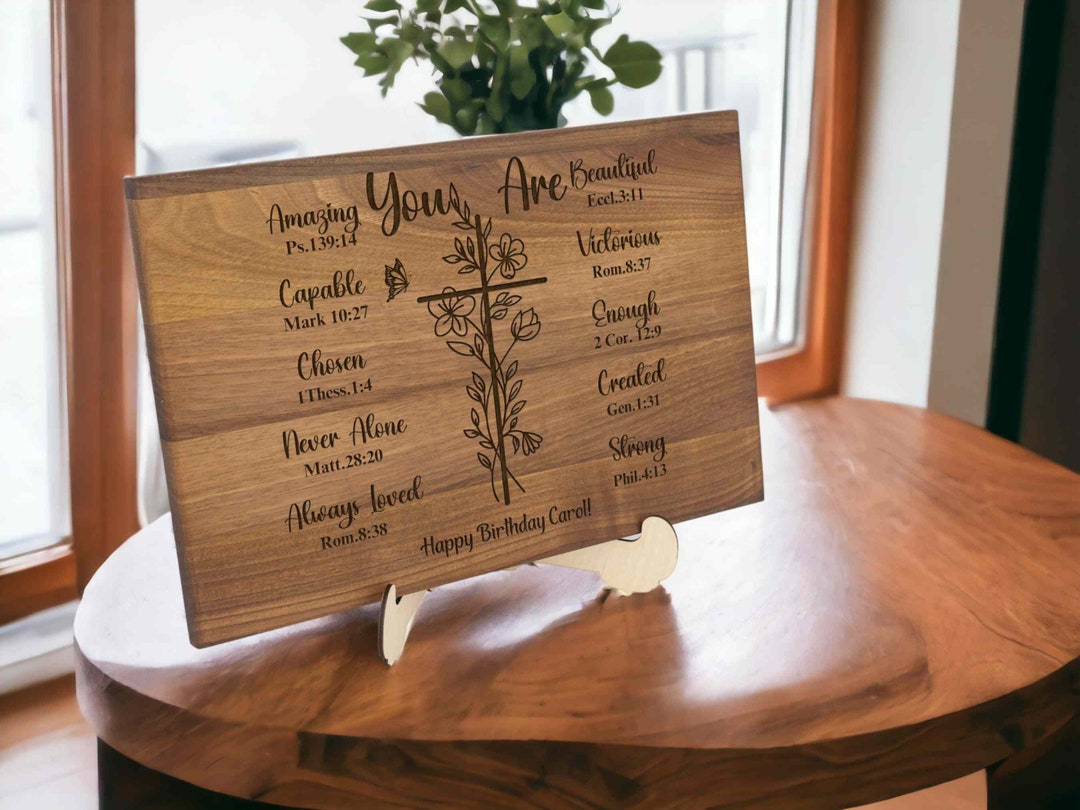 You Are
Amazing
Ps.139:14
Capable
Mark 10:27
Chosen
1Thess.1:4
Never Alone
Matt.28:20
Always Loved
Rom.8:38
Beautiful
Eccl.3:11
Victorious
Rom.8:37
Enough
2 Cor. 12:9
Created
Gen.1:31
Strong
Phil.4:13
Happy Birthday Carol!